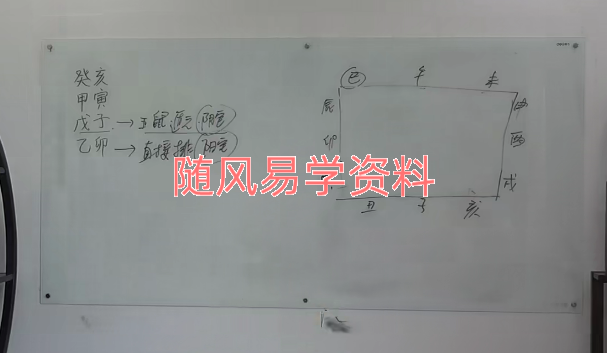 癸亥
甲寅
戊子 → 五鼠遁元 阴宅
乙卯 → 直接排 阴宅
随风易学资料
巳 午 未
辰 申
卯 酉
戌
丑 子 亥